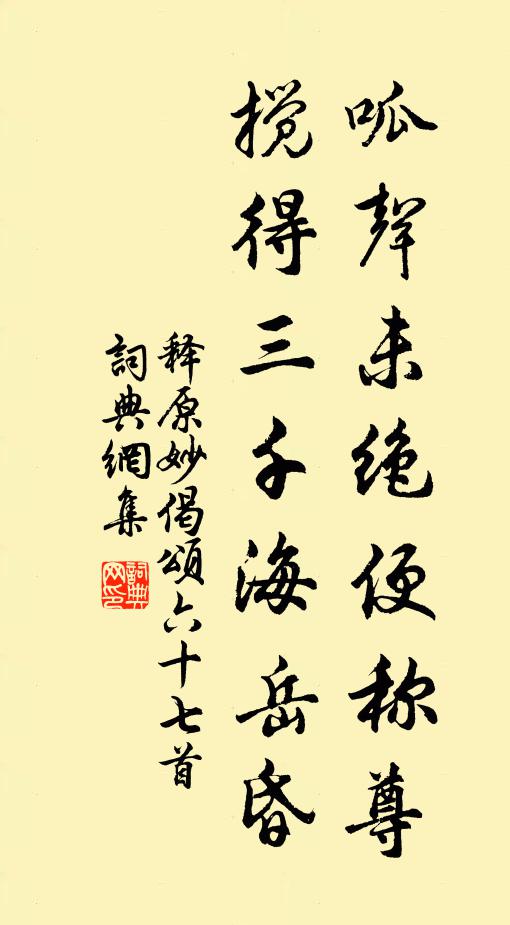 呱聲未絶便称尊
搅得三千海岳昏
释原妙偈頌六十七首
詞典網集
詞典网印